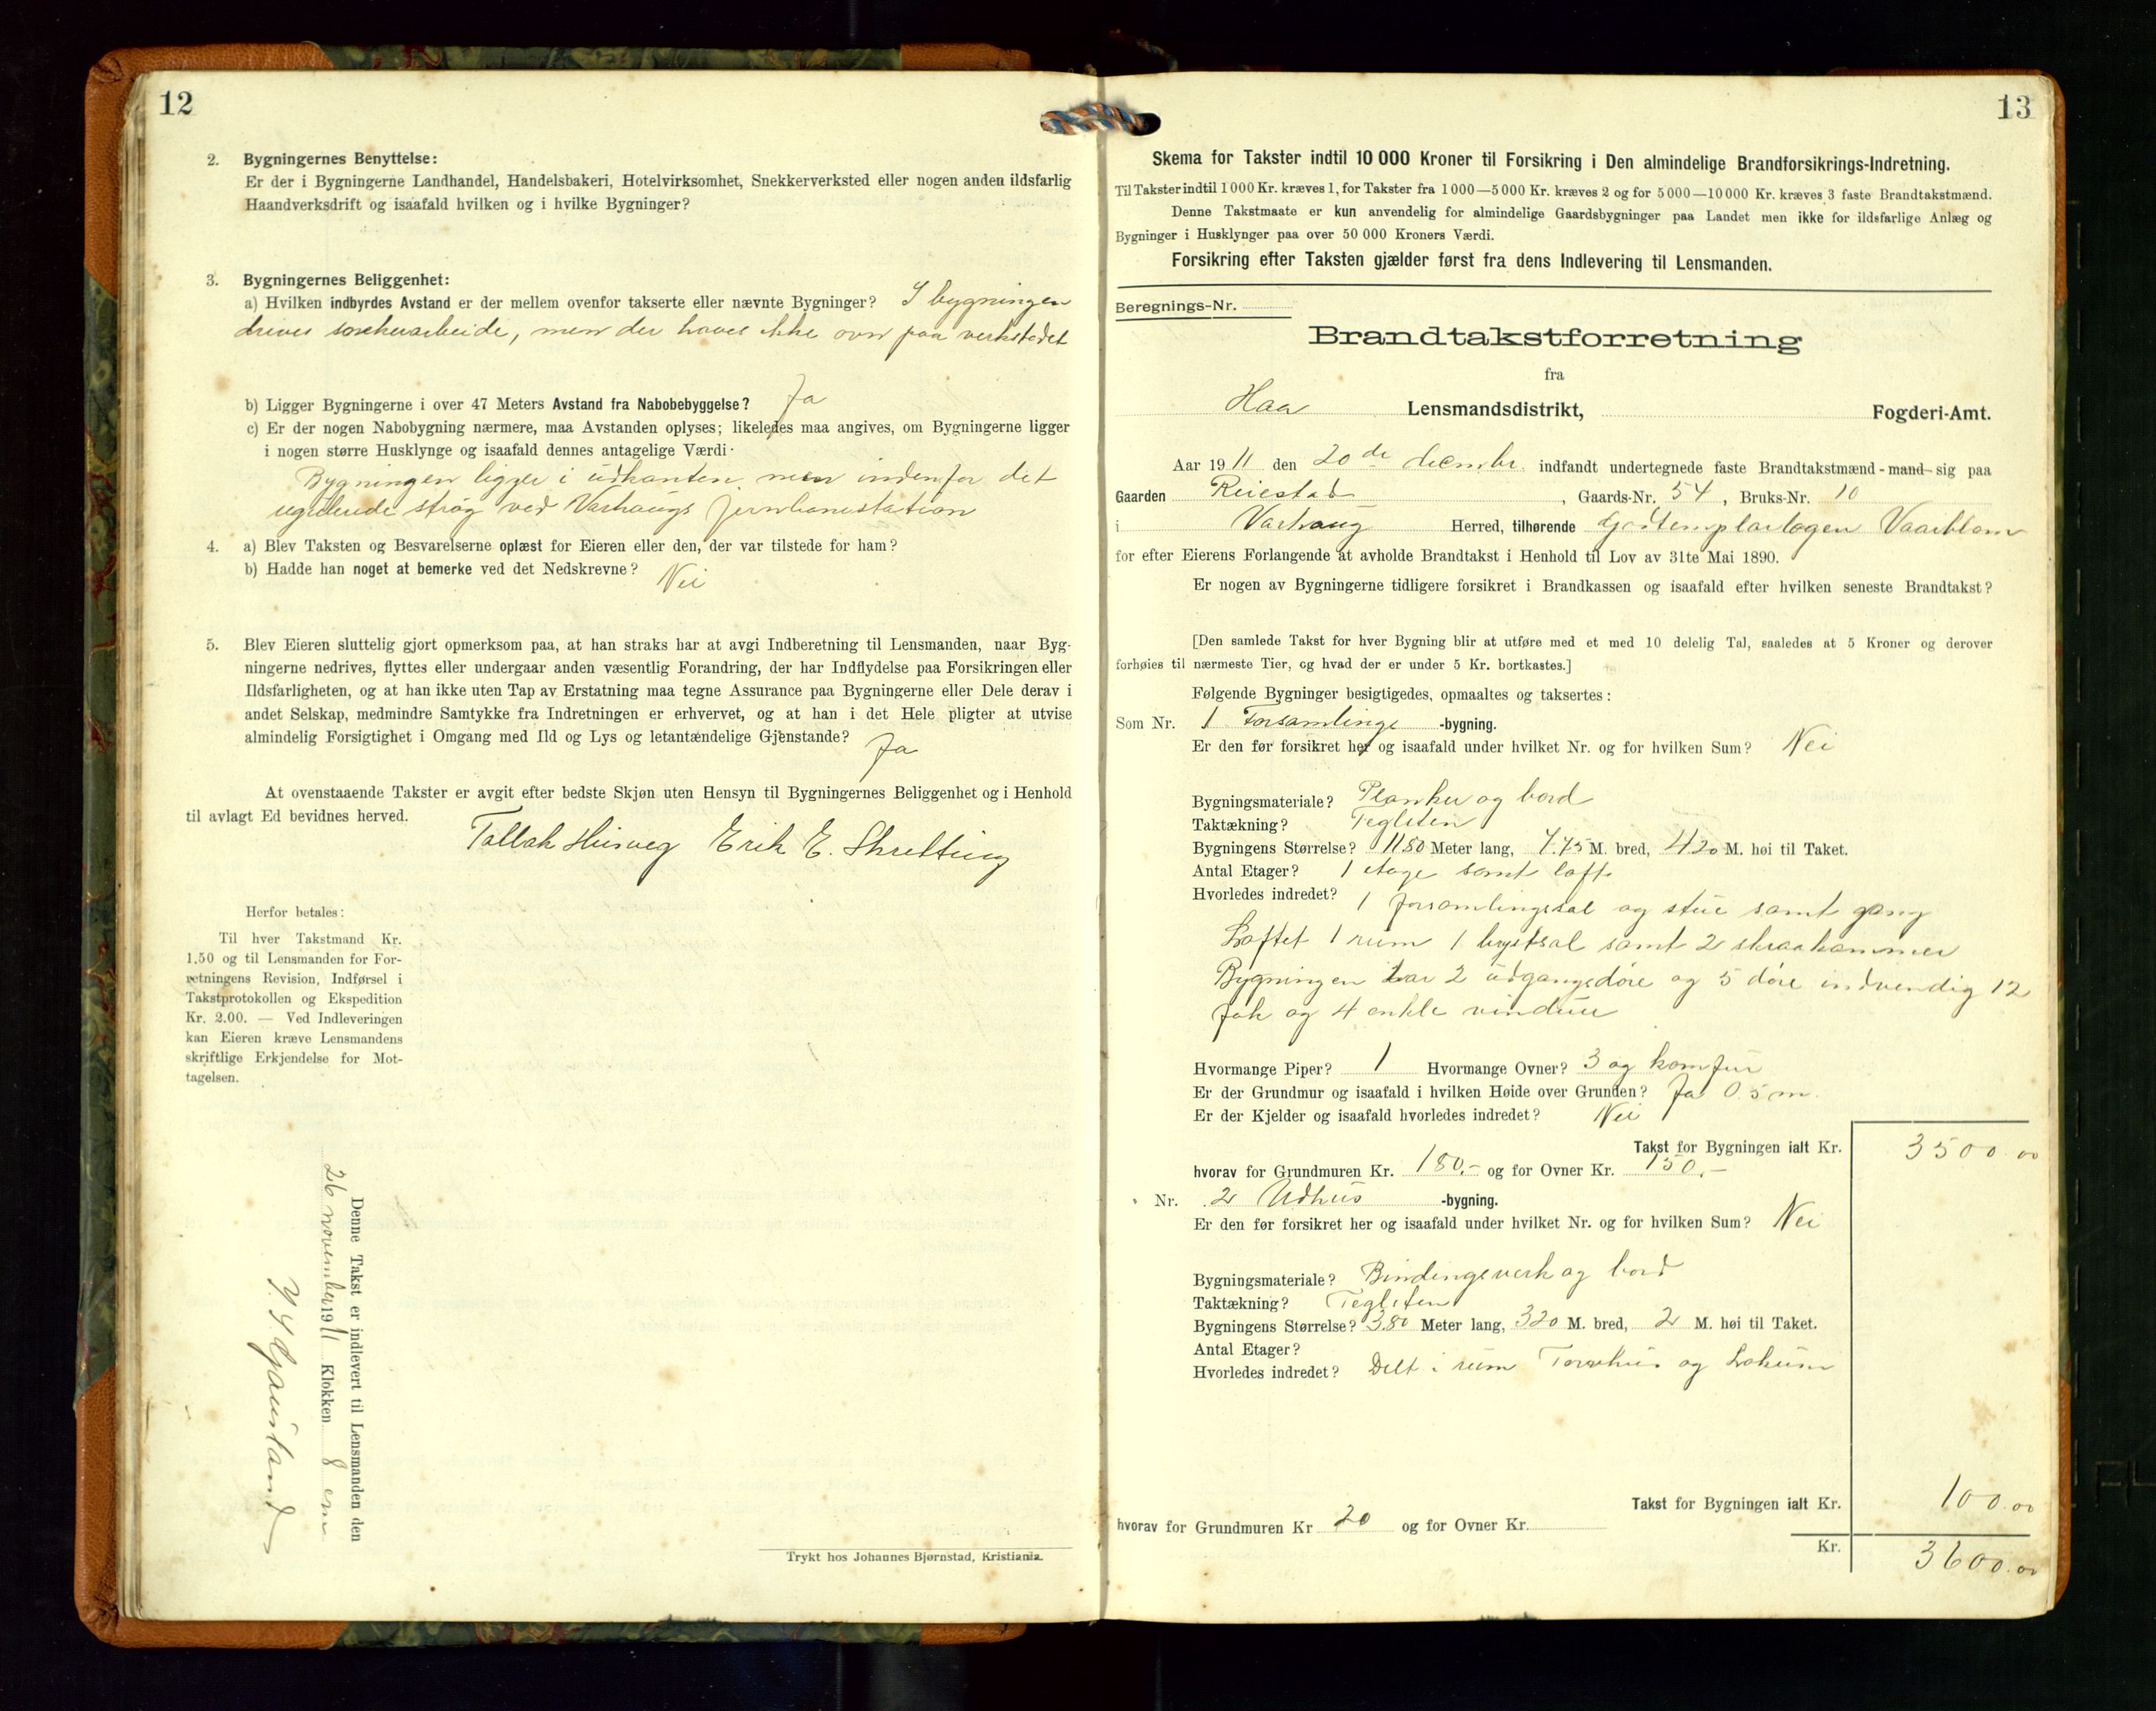 12
2. Bygningernes Benyttelse:
Er der i Bygningerne Landhandel, Handelsbakeri, Hotelvirksomhet, Snekkerverksted eller nogen anden ildsfarlig
Haandverksdrift og isaafald hvilken og i hvilke Bygninger?
3. Bygningernes Beliggenhet:
a) Hvilken indbyrdes Avstand er der mellem ovenfor takserte eller nævnte Bygninger? I bygningen
drives snekkerarbeide, men der haves ikke ovn paa verkstedet
b) Ligger Bygningerne i over 47 Meters Avstand fra Nabobebyggelse? Ja
c) Er der nogen Nabobygning nærmere, maa Avstanden oplyses; likeledes maa angives, om Bygningerne ligger
i nogen større Husklynge og isaafald dennes antagelige Værdi.
Bygningen ligger i udkanten, men indenfor det
strøg ved Varhaugs jernbanestation
4. a) Blev Taksten og Besvarelserne oplæst for Eieren eller den, der var tilstede for ham?
b) Hadde han noget at bemerke ved det Nedskrevne? Nei
5. Blev Eieren sluttelig gjort opmerksom paa, at han straks har at avgi Indberetning til Lensmanden, naar Byg-
ningerne nedrives, flyttes eller undergaar anden væsentlig Forandring, der har Indflydelse paa Forsikringen eller
Ildsfarligheten, og at han ikke uten Tap av Erstatning maa tegne Assurance paa Bygningerne eller Dele derav i
andet Selskap, medmindre Samtykke fra Indretningen er erhvervet, og at han i det Hele pligter at utvise
almindelig Forsigtighet i Omgang med Ild og Lys og letantændelige Gjenstande? Ja
At ovenstaaende Takster er avgit efter bedste Skjøn uten Hensyn til Bygningernes Beliggenhet og i Henhold
til avlagt Ed bevidnes herved.
Tallak Husveg Erik E. Skretting
Herfor betales:
Til hver Takstmand Kr.
1.50 og til Lensmanden for For-
retningens Revision, Indførsel i
Takstprotokollen og Ekspedition
Kr. 2.00. — Ved Indleveringen
kan Eieren kræve Lensmandens
skriftlige Erkjendelse for Mot-
tagelsen.
Denne Takst er indlevert til Lensmanden den
26 november 1911 Klokken 8 em
Gausland
Trykt hos Johannes Bjørnstad, Kristiania.
13
Skema for Takster indtil 10 000 Kroner til Forsikring i Den almindelige Brandforsikrings-Indretning.
Til Takster indtil 1000 Kr. kræves 1, for Takster fra 1000—5000 Kr. kræves 2 og for 5000—10000 Kr. kræves 3 faste Brandtakstmænd.
Denne Takstmaate er kun anvendelig for almindelige Gaardsbygninger paa Landet men ikke for ildsfarlige Anlæg og
Bygninger i Husklynger paa over 50 000 Kroners Værdi.
Forsikring efter Taksten gjælder først fra dens Indlevering til Lensmanden.
Beregnings-Nr.
Brandtakstforretning
fra
Haa Lensmandsdistrikt, Fogderi-Amt.
Aar 1911 den 20de decmbr. indfandt undertegnede faste Brandtakstmænd-mand-sig paa
Gaarden Reiestad, Gaards-Nr. 54, Bruks-Nr. 10
i Varhaug Herred, tilhørende Godtemplarlogen Vaarblom
for efter Eierens Forlangende at avholde Brandtakst i Henhold til Lov av 31te Mai 1890.
Er nogen av Bygningerne tidligere forsikret i Brandkassen og isaafald efter hvilken seneste Brandtakst?
[Den samlede Takst for hver Bygning blir at utføre med et med 10 delelig Tal, saaledes at 5 Kroner og derover
forhøies til nærmeste Tier, og hvad der er under 5 Kr. bortkastes.]
Følgende Bygninger besigtigedes, opmaaltes og taksertes:
Som Nr. 1 Forsamlings -bygning.
Er den før forsikret her og isaafald under hvilket Nr. og for hvilken Sum? Nei
Bygningsmateriale? Planker og bord
Taktækning? Teglsten
Bygningens Størrelse? 11.80 Meter lang, 7.45 M. bred, 4.20 M. høi til Taket.
Antal Etager? 1 etage samt loft
Hvorledes indredet? 1 forsamlingssal og stue samt gang
Loftet 1 rum 1 samt 2 skraakammer
Bygningen har 2 udgangsdøre og 5 døre indvendig 12
fak og 4 enkle vinduer
Hvormange Piper? 1 Hvormange Ovner? 3 og komfur
Er der Grundmur og isaafald i hvilken Høide over Grunden? Ja 0.5 m.
Er der Kjelder og isaafald hvorledes indredet? Nei
Takst for Bygningen ialt Kr. 3500.00
hvorav for Grundmuren Kr. 180.- og for Ovner Kr. 150.-
Nr. 2 Udhus -bygning.
Er den før forsikret her og isaafald under hvilket Nr. og for hvilken Sum? Nei
Bygningsmateriale? Bindingsverk og bord
Taktækning? Teglsten
Bygningens Størrelse? 3.80 Meter lang, 3.20 M. bred, 2 M. høi til Taket.
Antal Etager?
Hvorledes indredet? Delt i rum Torvhus og Lokum
Takst for Bygningen ialt Kr. 100.00
hvorav for Grundmuren Kr 20 og for Ovner Kr.
Kr. 3600.00